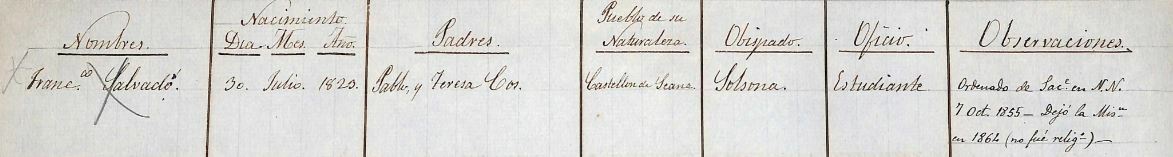 Nombres. Nacimiento. Padres. Pueblo de su Naturaleza. Obispado. Oficio. Observaciones.
Dia Mes. Año.
Franc.co Salvadó. 30. Julio. 1829. Pablo, y Teresa Cos. Castellon de Seana. Solsona. Estudiante
Ordenado de Sac.e en N.N.
7 Oct. 1855 — Dejó la Mis.n
en 1864 (no fué relig.o) —